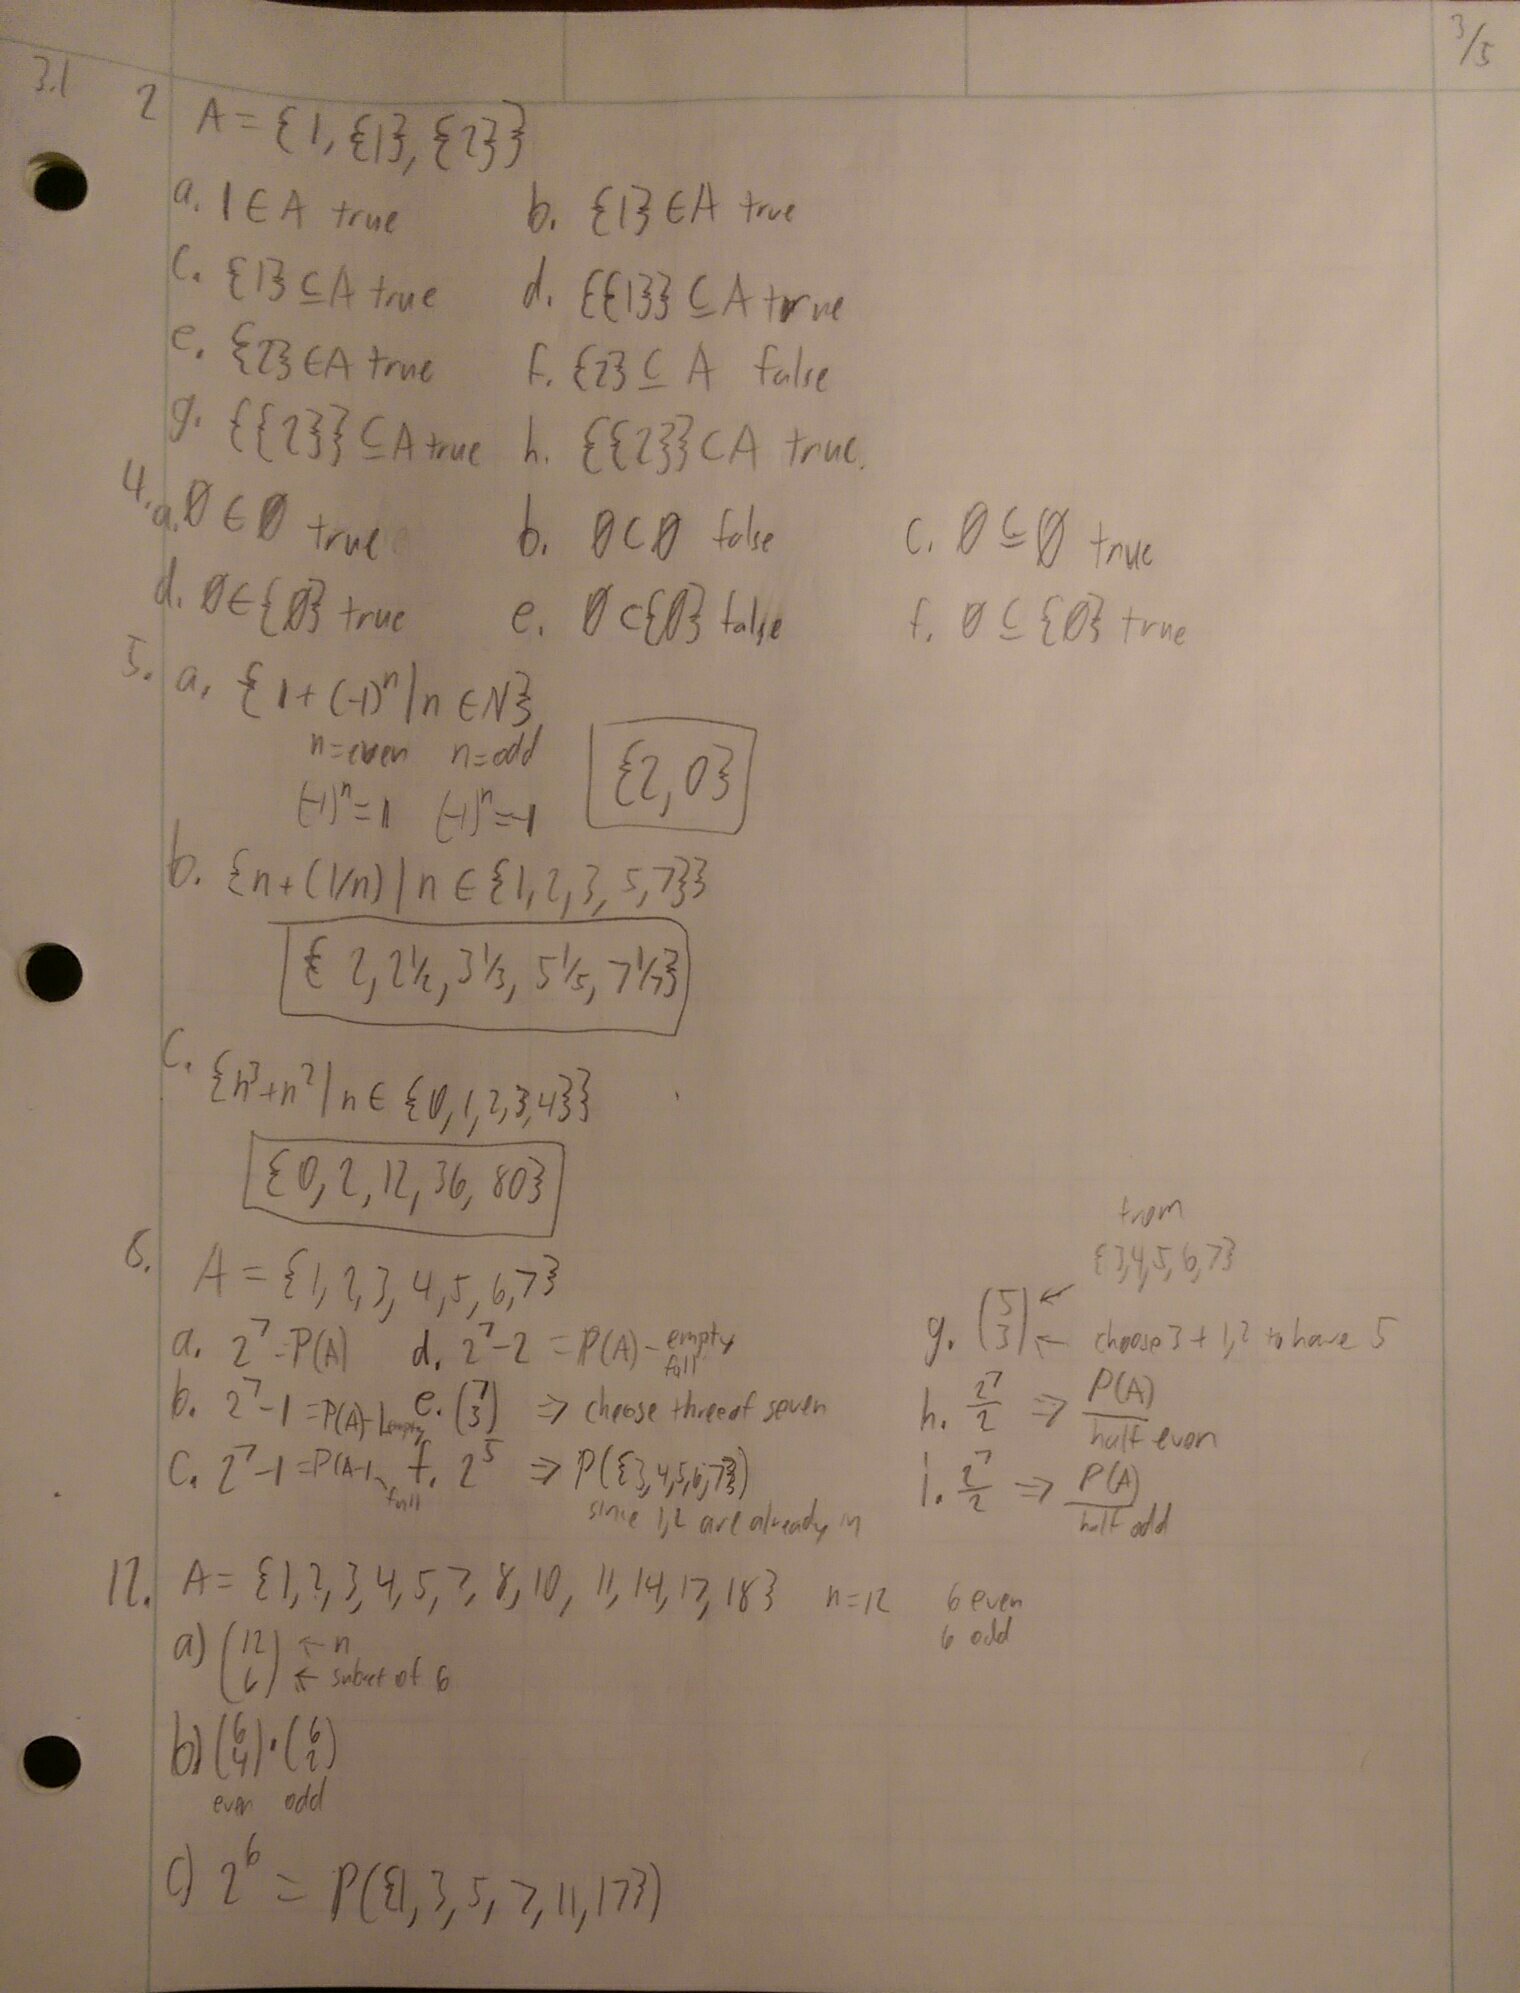 3/5
3.1
2 A = {1, {1}, {2}}
a. 1 ∈ A true b. {1} ∈ A true
c. {1} ⊆ A true d. {{1}} ⊆ A true
e. {2} ∈ A true f. {2} ⊆ A false
g. {{2}} ⊆ A true h. {{2}} ⊂ A true.
4. a. Ø ∈ Ø true b. Ø ⊂ Ø false c. Ø ⊆ Ø true
d. Ø ∈ {Ø} true e. Ø ⊂ {Ø} false f. Ø ⊆ {Ø} true
5. a. {1 + (-1)ⁿ | n ∈ N}
n = even n = odd
(-1)ⁿ = 1 (-1)ⁿ = -1
{2, 0}
b. {n + (1/n) | n ∈ {1, 2, 3, 5, 7}}
{2, 2 1/2, 3 1/3, 5 1/5, 7 1/7}
c. {n³ + n² | n ∈ {0, 1, 2, 3, 4}}
{0, 2, 12, 36, 80}
8. A = {1, 2, 3, 4, 5, 6, 7}
a. 2⁷ = P(A) d. 2⁷ - 2 = P(A) - empty full
b. 2⁷ - 1 = P(A) - 1 empty e. (7 3) ⇒ choose three of seven
c. 2⁷ - 1 = P(A - 1 full f. 2⁵ ⇒ P({3, 4, 5, 6, 7})
since 1, 2 are already in
from
{3, 4, 5, 6, 7}
g. (5 3) ← choose 3 + 1, 2 to have 5
h. 2⁷/2 ⇒ P(A)/half even
i. 2⁷/2 ⇒ P(A)/half odd
12. A = {1, 2, 3, 4, 5, 7, 8, 10, 11, 14, 17, 18} n = 12 6 even
6 odd
a) (12 6) ← n
← subset of 6
b) (6 4) · (6 2)
even odd
c) 2⁶ = P({1, 3, 5, 7, 11, 17})